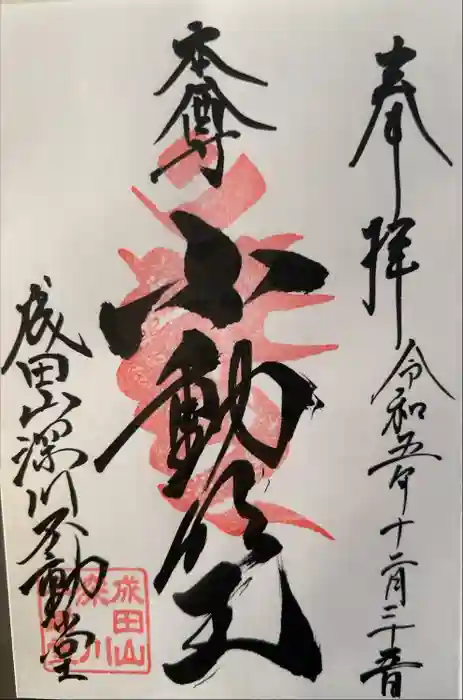 奉拝
令和五年十二月二十五日
本尊
不動明王
成田山深川不動堂
成田山
深川